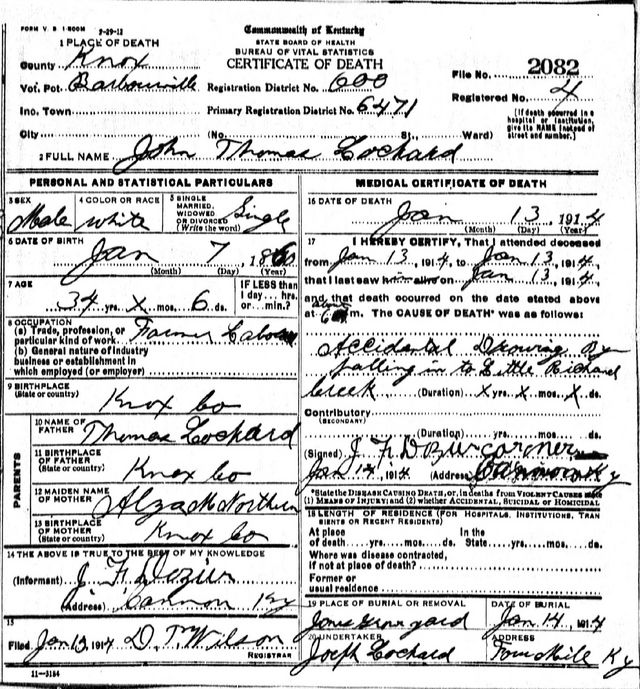 FORM V. S. 1-500M 9-29-12
Commonwealth of Kentucky
STATE BOARD OF HEALTH
BUREAU OF VITAL STATISTICS
CERTIFICATE OF DEATH
1 PLACE OF DEATH
County Knox
Vot. Pct Barbourville Registration District No. 600 File No. 2082
Inc. Town Primary Registration District No. 6471 Registered No. 4
City (No. St., Ward) (If death occurred in a hospital or institution, give its NAME instead of street and number.)
2 FULL NAME John Thomas Lockard
PERSONAL AND STATISTICAL PARTICULARS
3 SEX Male
4 COLOR OR RACE white
5 SINGLE, MARRIED, WIDOWED OR DIVORCED (Write the word) Single
6 DATE OF BIRTH
Jan 7
(Month) (Day) (Year)
7 AGE
34 yrs. x mos. 6 ds.
IF LESS than 1 day... hrs. or...min.?
8 OCCUPATION
(a) Trade, profession, or particular kind of work Farmer
(b) General nature of industry business or establishment in which employed (or employer)
9 BIRTHPLACE (State or country) Knox Co
PARENTS
10 NAME OF FATHER Thomas Lockard
11 BIRTHPLACE OF FATHER (State or country) Knox Co
12 MAIDEN NAME OF MOTHER Northern
13 BIRTHPLACE OF MOTHER (State or country) Knox Co
14 THE ABOVE IS TRUE TO THE BEST OF MY KNOWLEDGE
(Informant) J F Dozier
(Address) Cannon Ky
15
Filed Jan 13, 1914 D M Wilson
REGISTRAR
11-3184
MEDICAL CERTIFICATE OF DEATH
16 DATE OF DEATH
Jan 13, 1914
(Month) (Day) (Year)
17 I HEREBY CERTIFY, That I attended deceased
from Jan 13, 1914, to Jan 13, 1914,
that I last saw him alive on Jan 13, 1914,
and that death occurred on the date stated above
at m. The CAUSE OF DEATH* was as follows:
Accidental Drowing By
falling in to Little Richland
Creek (Duration) x yrs. x mos. x ds.
Contributory
(SECONDARY)
(Duration) yrs. mos. ds.
(Signed)
Jan 14, 1914 (Address) Ky
*State the DISEASE CAUSING DEATH, or, in deaths from VIOLENT CAUSES state
(1) MEANS OF INJURY; and (2) whether ACCIDENTAL, SUICIDAL OR HOMICIDAL
18 LENGTH OF RESIDENCE (FOR HOSPITALS, INSTITUTIONS, TRANSIENTS OR RECENT RESIDENTS)
At place of death yrs. mos. ds. In the State yrs. mos. ds.
Where was disease contracted, if not at place of death?
Former or usual residence
19 PLACE OF BURIAL OR REMOVAL
Jones
DATE OF BURIAL
Jan 14, 1914
20 UNDERTAKER
Joeph Lockard
ADDRESS
Four Mile Ky